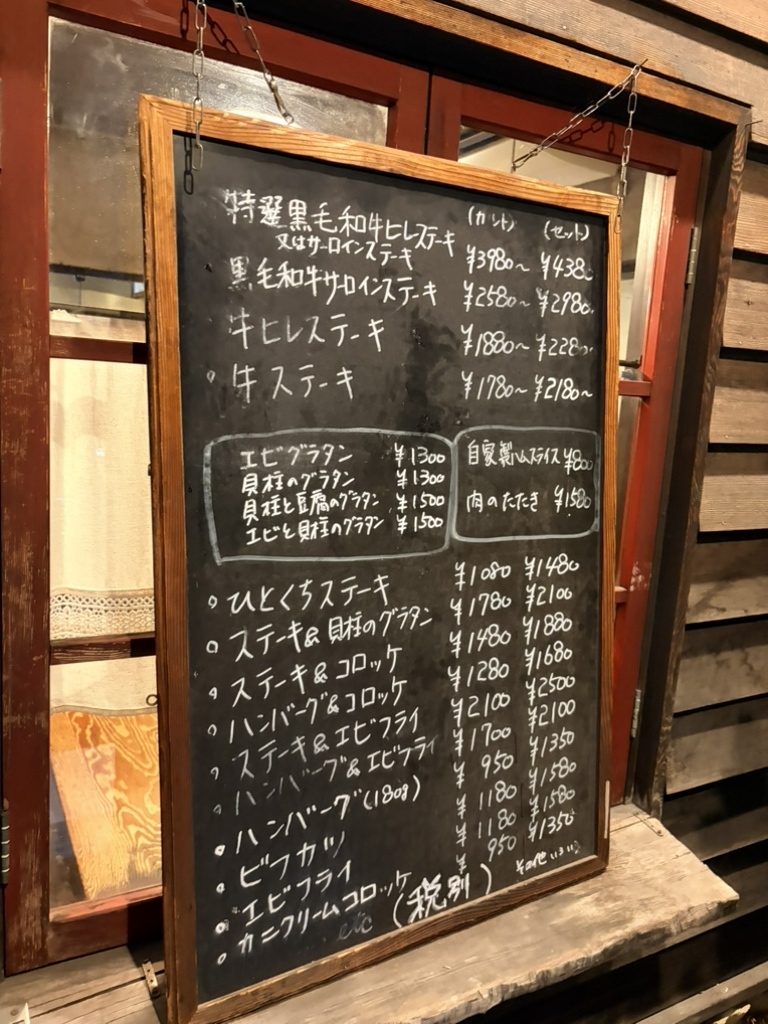 (カント) (セット)
特選黒毛和牛ヒレステーキ
又はサーロインステーキ ¥3980〜 ¥4380
黒毛和牛サーロインステーキ ¥2580〜 ¥2980
牛ヒレステーキ ¥1880〜 ¥2280
牛ステーキ ¥1780〜 ¥2180〜
エビグラタン ¥1300
貝柱のグラタン ¥1300
貝柱と豆腐のグラタン ¥1500
エビと貝柱のグラタン ¥1500
自家製ハムスライス ¥800
肉のたたき ¥1580
ひとくちステーキ ¥1080 ¥1480
ステーキ&貝柱のグラタン ¥1780 ¥2100
ステーキ&コロッケ ¥1480 ¥1880
ハンバーグ&コロッケ ¥1280 ¥1680
ステーキ&エビフライ ¥2100 ¥2500
ハンバーグ&エビフライ ¥1700 ¥2100
ハンバーグ(180g) ¥950 ¥1350
ビフカツ ¥1180 ¥1580
エビフライ ¥1180 ¥1580
カニクリームコロッケ ¥950 ¥1350
etc (税別) その他いろいろ